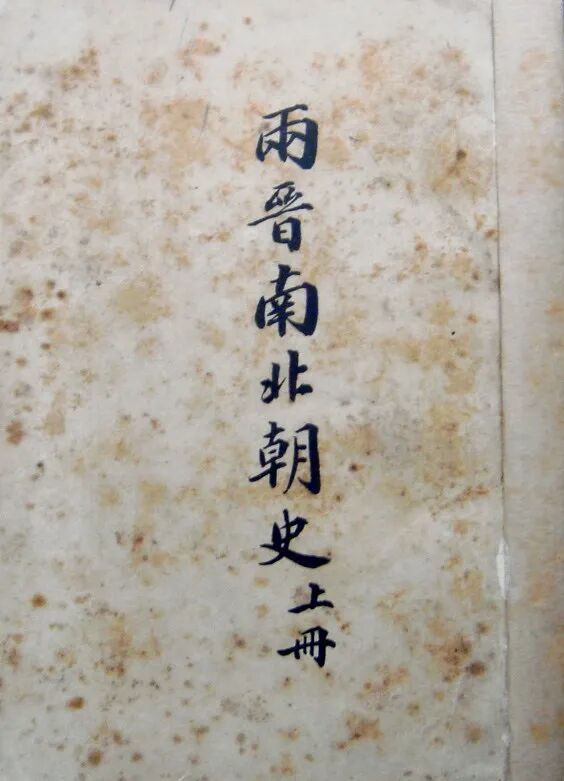 兩晉南北朝史
上冊